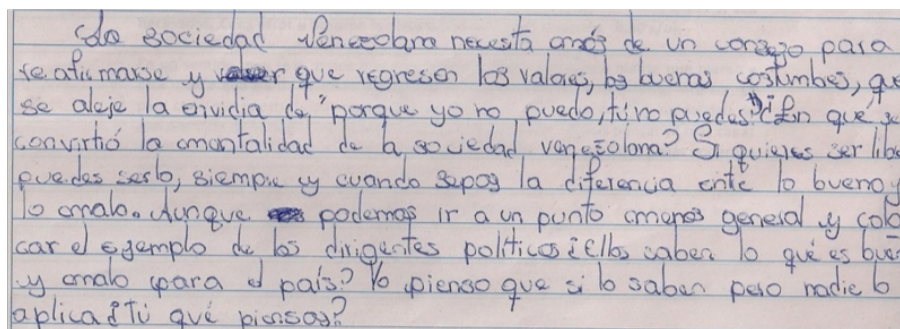 La sociedad Venezolana necesita más de un consejo para
reafirmarse y que regresen los valores, las buenas costumbres, que
se aleje la envidia de "porque yo no puedo, tú no puedes" ¿En qué se
convirtió la mentalidad de la sociedad venezolana? Si quieres ser libre
puedes serlo, siempre y cuando sepas la diferencia ente lo bueno y
lo malo. Aunque podemos ir a un punto menos general y colo
car el ejemplo de los dirigentes políticos ¿ellos saben lo qué es bue
y malo para el país? Yo pienso que si lo saben pero nadie lo
aplica ¿Tú qué piensas?